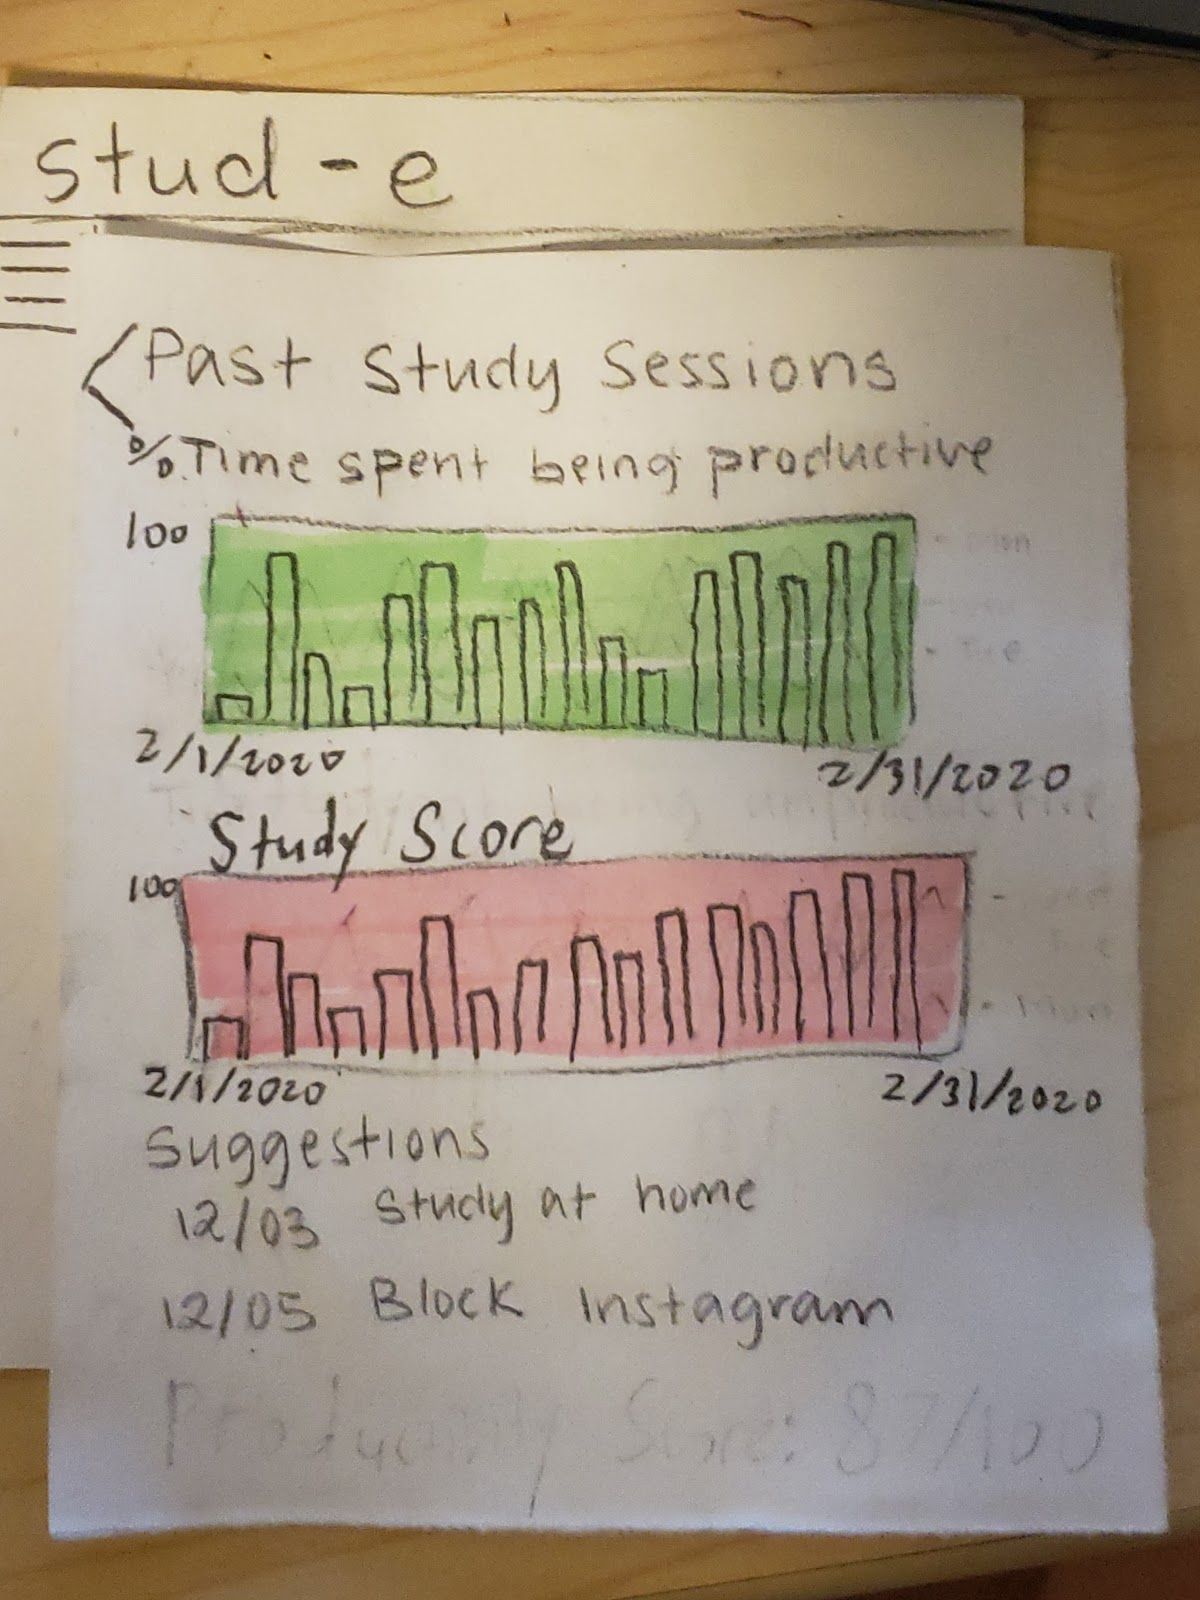 stud-e
Past Study Sessions
% Time spent being productive
100
2/1/2020 2/31/2020
Study Score
100
2/1/2020 2/31/2020
Suggestions
12/03 Study at home
12/05 Block Instagram
Productivity Score: 87/100